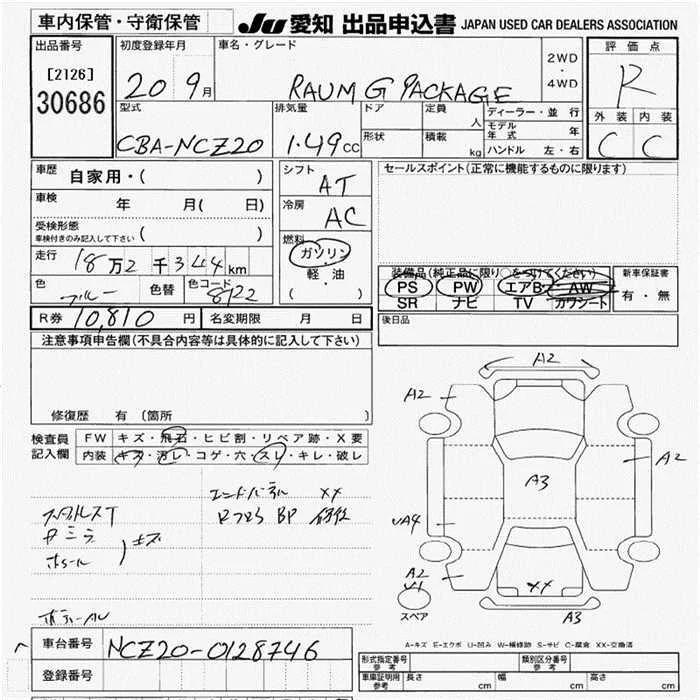 車内保管・守衛保管
JU 愛知 出品申込書 JAPAN USED CAR DEALERS ASSOCIATION
出品番号
[2126]
30686
初度登録年月
20 9月
車名・グレード
RAUM G PACKAGE
2WD
・
4WD
評価点
R
外装 内装
C C
型式
CBA-NCZ20
排気量
1.49cc
ドア
形状
定員
人
積載
kg
ディーラー・並行
モデル年式 年
ハンドル 左・右
車歴
自家用・( )
車検 年 月( 日)
受検形態
車検付きのみ記入して下さい ( )
走行 18万2千344km
色 ブルー 色替 色コード 8T22
シフト
AT
冷房
AC
燃料
ガソリン
・
軽・油
( )
セールスポイント(正常に機能するものに限ります)
装備品(純正品に限り○をつけてください)
PS PW エアB AW
SR ナビ TV カワシート
新車保証書
有・無
R券 10,810 円 名変期限 月 日
後日品
注意事項申告欄(不具合内容等は具体的に記入して下さい)
修復歴 有(箇所 )
検査員記入欄
FW キズ・飛石・ヒビ割・リペア跡・X要
内装 キズ・汚レ・コゲ・穴・スレ・キレ・破レ
エンドパネル XX
BP
キズ
A2
A2
A2
A3
A2
XX
A3
スペア
A-キズ E-エクボ U-凹み W-補修跡 S-サビ C-腐食 XX-交換済
車台番号 NCZ20-0128746
登録番号
形式指定番号 参考
類別区分番号 参考
車庫証明用 参考 長さ cm 幅 cm 高さ cm